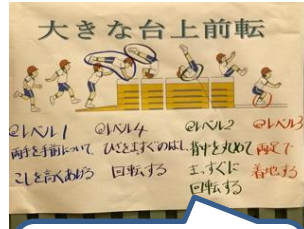 大きな台上前転
◎レベル1
両手を手前について、
こしを高くあげる
◎レベル4
ひざをまっすぐのばし、
回転する
◎レベル2
背中を丸めて
まっすぐに
回転する
◎レベル3
両足で
着地する